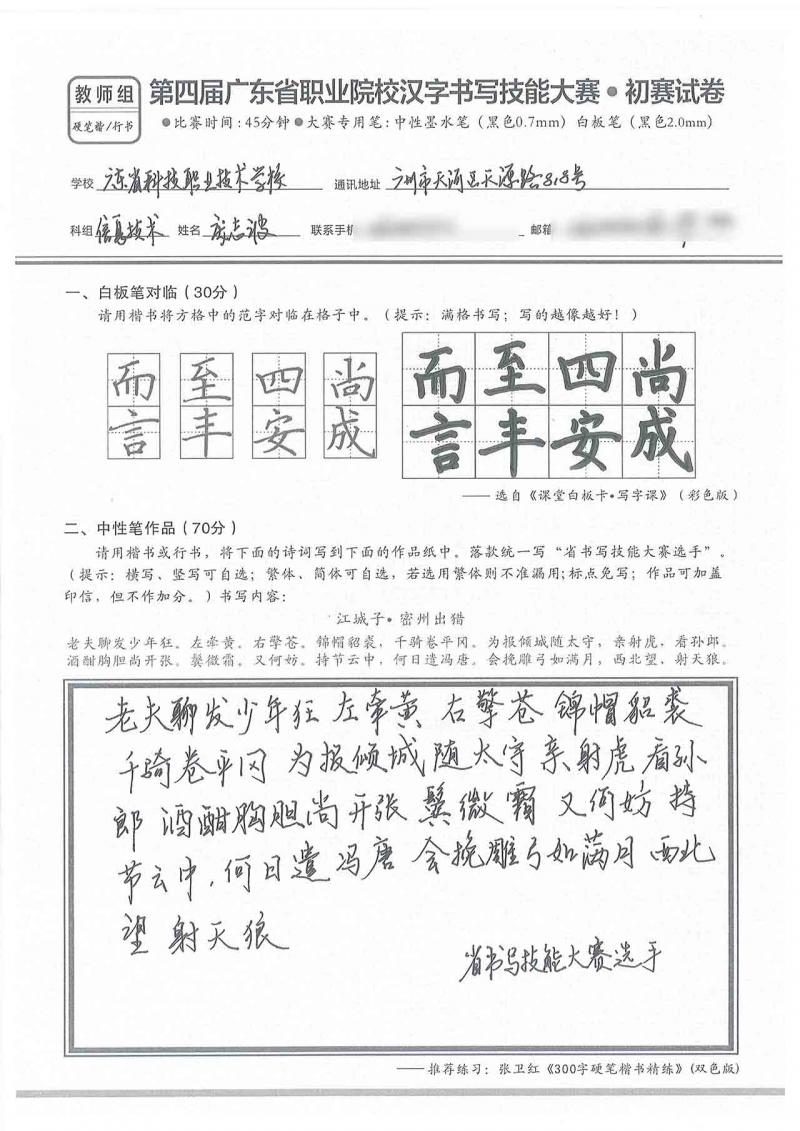 教师组
硬笔楷/行书
第四届广东省职业院校汉字书写技能大赛•初赛试卷
●比赛时间:45分钟●大赛专用笔:中性墨水笔(黑色0.7mm)白板笔(黑色2.0mm)
学校 广东省科技职业技术学校 通讯地址 广州市天河区天源路818号
科组 信息技术 姓名 志波 联系手机 邮箱
一、白板笔对临(30分)
请用楷书将方格中的范字对临在格子中。(提示:满格书写;写的越像越好!)
而 至 四 尚 而至四尚
言 丰 安 成 言丰安成
——选自《课堂白板卡•写字课》(彩色版)
二、中性笔作品(70分)
请用楷书或行书,将下面的诗词写到下面的作品纸中。落款统一写“省书写技能大赛选手”。
(提示:横写、竖写可自选;繁体、简体可自选,若选用繁体则不准漏用;标点免写;作品可加盖
印信,但不作加分。)书写内容:
江城子•密州出猎
老夫聊发少年狂。左牵黄。右擎苍。锦帽貂裘,千骑卷平冈。为报倾城随太守,亲射虎,看孙郎。
酒酣胸胆尚开张。鬓微霜。又何妨。持节云中,何日遣冯唐。会挽雕弓如满月,西北望、射天狼。
老夫聊发少年狂 左牵黄 右擎苍 锦帽貂裘
千骑卷平冈 为报倾城随太守 亲射虎 看孙
郎 酒酣胸胆尚开张 鬓微霜 又何妨 持
节云中,何日遣冯唐 会挽雕弓如满月 西北
望 射天狼
省书写技能大赛选手
——推荐练习:张卫红《300字硬笔楷书精练》(双色版)